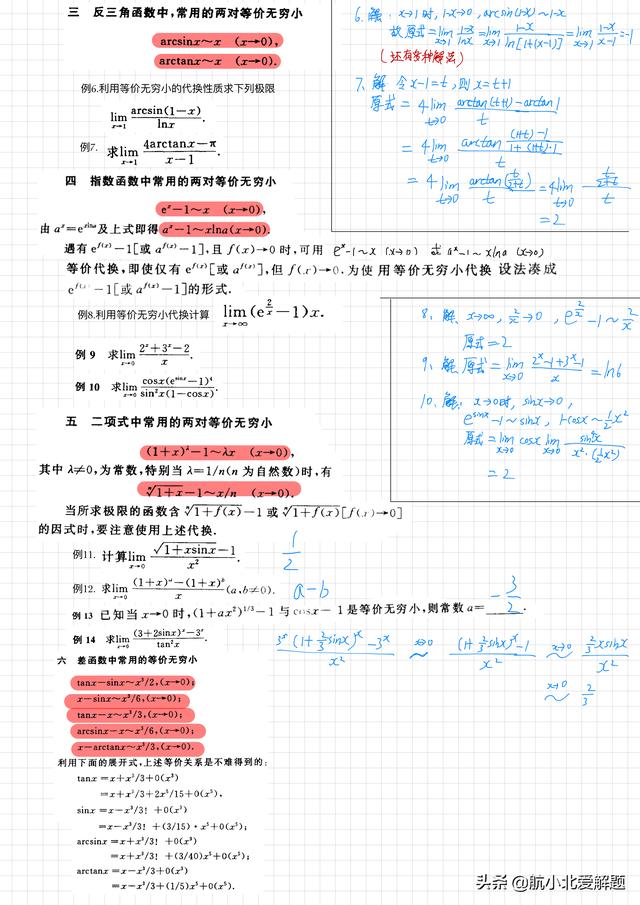 三 反三角函数中,常用的两对等价无穷小
arcsinx~x (x→0),
arctanx~x (x→0).
例6.利用等价无穷小的代换性质求下列极限
lim x→1 arcsin(1-x)/lnx.
例7. 求lim x→1 (4arctanx-π)/(x-1).
四 指数函数中常用的两对等价无穷小
eˣ-1~x (x→0),
由 aˣ=e^(xlna)及上式即得 aˣ-1~xlna(x→0).
遇有 e^f(x)-1[或 a^f(x)-1],且 f(x)→0 时,可用 eˣ-1~x (x→0) 或 aˣ-1~xlna (x→0)
等价代换,即使仅有 e^f(x)[或 a^f(x)],但 f(x)→0.为使用等价无穷小代换 设法凑成
e^f(x)-1[或 a^f(x)-1]的形式.
例8.利用等价无穷小代换计算 lim x→∞ (e^(2/x)-1)x.
例 9 求lim x→0 (2ˣ+3ˣ-2)/x.
例 10 求lim x→0 cosx(e^sinx-1)⁴/(sin²x(1-cosx)).
五 二项式中常用的等价无穷小
(1+x)^λ-1~λx (x→0),
其中 λ≠0,为常数,特别当 λ=1/n(n 为自然数)时,有
ⁿ√(1+x)-1~x/n (x→0).
当所求极限的函数含 ⁿ√(1+f(x))-1 或 ⁿ√(1+f(x)) [f(x)→0]
的因式时,要注意使用上述代换.
例11. 计算lim x→0 (√(1+xsinx)-1)/x². 1/2
例12. 求lim x→0 ((1+x)ᵃ-(1+x)ᵇ)/x (a,b≠0). a-b
例 13 已知当 x→0 时,(1+ax²)^(1/3)-1 与 cosx-1是等价无穷小,则常数 a= -3/2 .
例 14 求lim x→0 ((3+2sinx)ˣ-3ˣ)/tan²x.
六 差函数中常用的等价无穷小
tanx-sinx~x³/2,(x→0);
x-sinx~x³/6,(x→0);
tanx-x~x³/3,(x→0);
arcsinx-x~x³/6,(x→0);
x-arctanx~x³/3,(x→0).
利用下面的展开式,上述等价关系是不难得到的:
tanx=x+x³/3+0(x³)
=x+x³/3+2x⁵/15+0(x⁵),
sinx=x-x³/3! +0(x³)
=x-x³/3! +(3/15)·x⁵+0(x⁵);
arcsinx=x+x³/3! +0(x³)
=x+x³/3! +(3/40)x⁵+0(x⁵);
arctanx=x-x³/3+0(x³)
=x-x³/3+(1/5)x⁵+0(x⁵).
6. 解: x→1时, 1-x→0, arcsin(1-x)~1-x
故原式=lim x→1 (1-x)/lnx=lim x→1 (1-x)/ln[1+(x-1)]=lim x→1 (1-x)/(x-1)=-1
(还有多种解法)
7、解 令x-1=t, 则x=t+1
原式 = 4lim t→0 (arctan(t+1)-arctan1)/t
= 4lim t→0 arctan(((1+t)-1)/(1+(1+t)·1))/t
= 4lim t→0 arctan(t/(2+t))/t =4lim t→0 (t/(2+t))/t
=2
8、解、x→∞, 2/x→0, e^(2/x)-1~2/x
原式=2
9、解、原式=lim x→0 (2ˣ-1+3ˣ-1)/x =ln6
10、解: x→0时, sinx→0,
e^sinx-1~sinx, 1-cosx~½x²
原式=lim x→0 cosx lim x→0 sin⁴x/(x²·(½x²))
=2
(3ˣ(1+⅔sinx)ˣ-3ˣ)/x² x→0 ~ ((1+⅔sinx)ˣ-1)/x² x→0 ~ (⅔xsinx)/x²
x→0 ~ 2/3
头条 @航小北爱解题